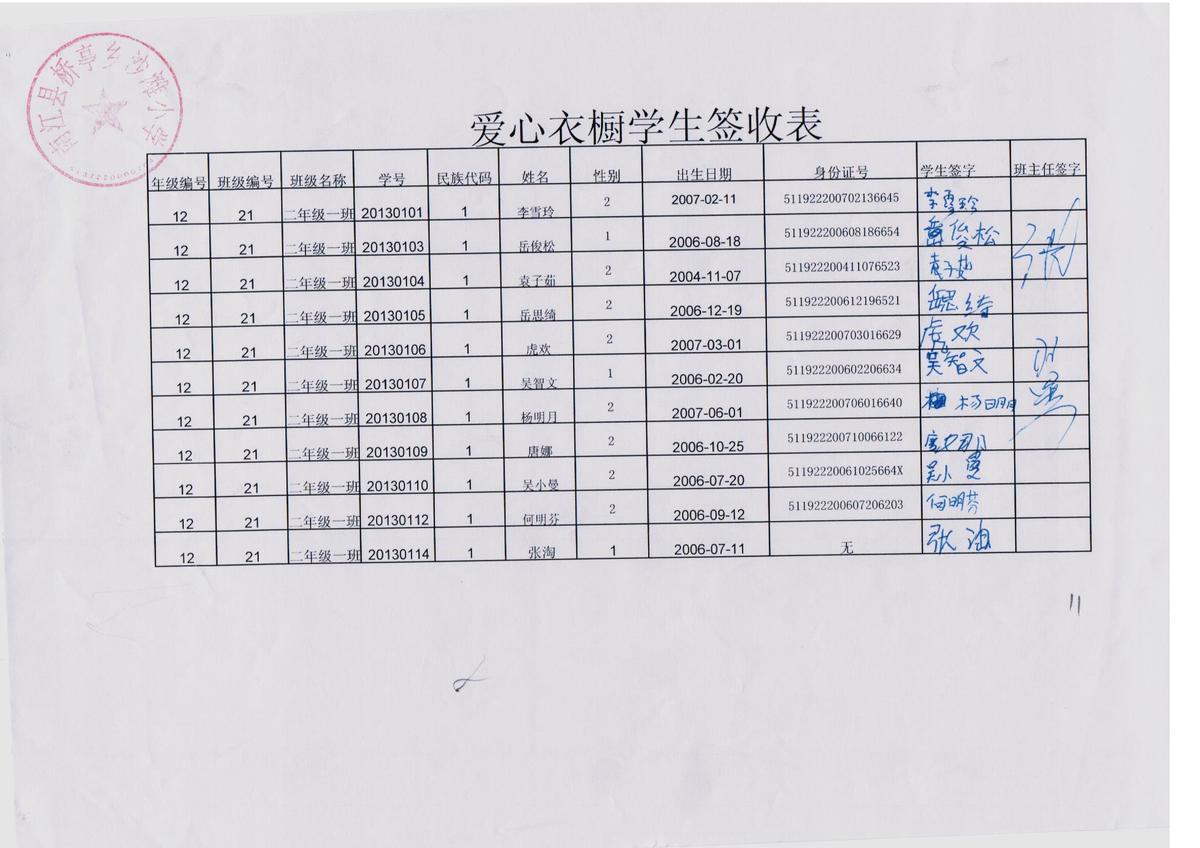 南江县桥亭乡沙滩小学
爱心衣橱学生签收表
年级编号 班级编号 班级名称 学号 民族代码 姓名 性别 出生日期 身份证号 学生签字 班主任签字
12 21 二年级一班 20130101 1 李雪玲 2 2007-02-11 511922200702136645 李雪玲
12 21 二年级一班 20130103 1 岳俊松 1 2006-08-18 511922200608186654 岳俊松
12 21 二年级一班 20130104 1 袁子茹 2 2004-11-07 511922200411076523 袁子茹
12 21 二年级一班 20130105 1 岳思绮 2 2006-12-19 511922200612196521
12 21 二年级一班 20130106 1 虎欢 2 2007-03-01 511922200703016629 虎欢
12 21 二年级一班 20130107 1 吴智文 1 2006-02-20 511922200602206634 吴智文
12 21 二年级一班 20130108 1 杨明月 2 2007-06-01 511922200706016640 杨明月
12 21 二年级一班 20130109 1 唐娜 2 2006-10-25 511922200710066122
12 21 二年级一班 20130110 1 吴小曼 2 2006-07-20 51192220061025664X 吴小曼
12 21 二年级一班 20130112 1 何明芬 2 2006-09-12 511922200607206203 何明芬
12 21 二年级一班 20130114 1 张淘 1 2006-07-11 无 张淘
11